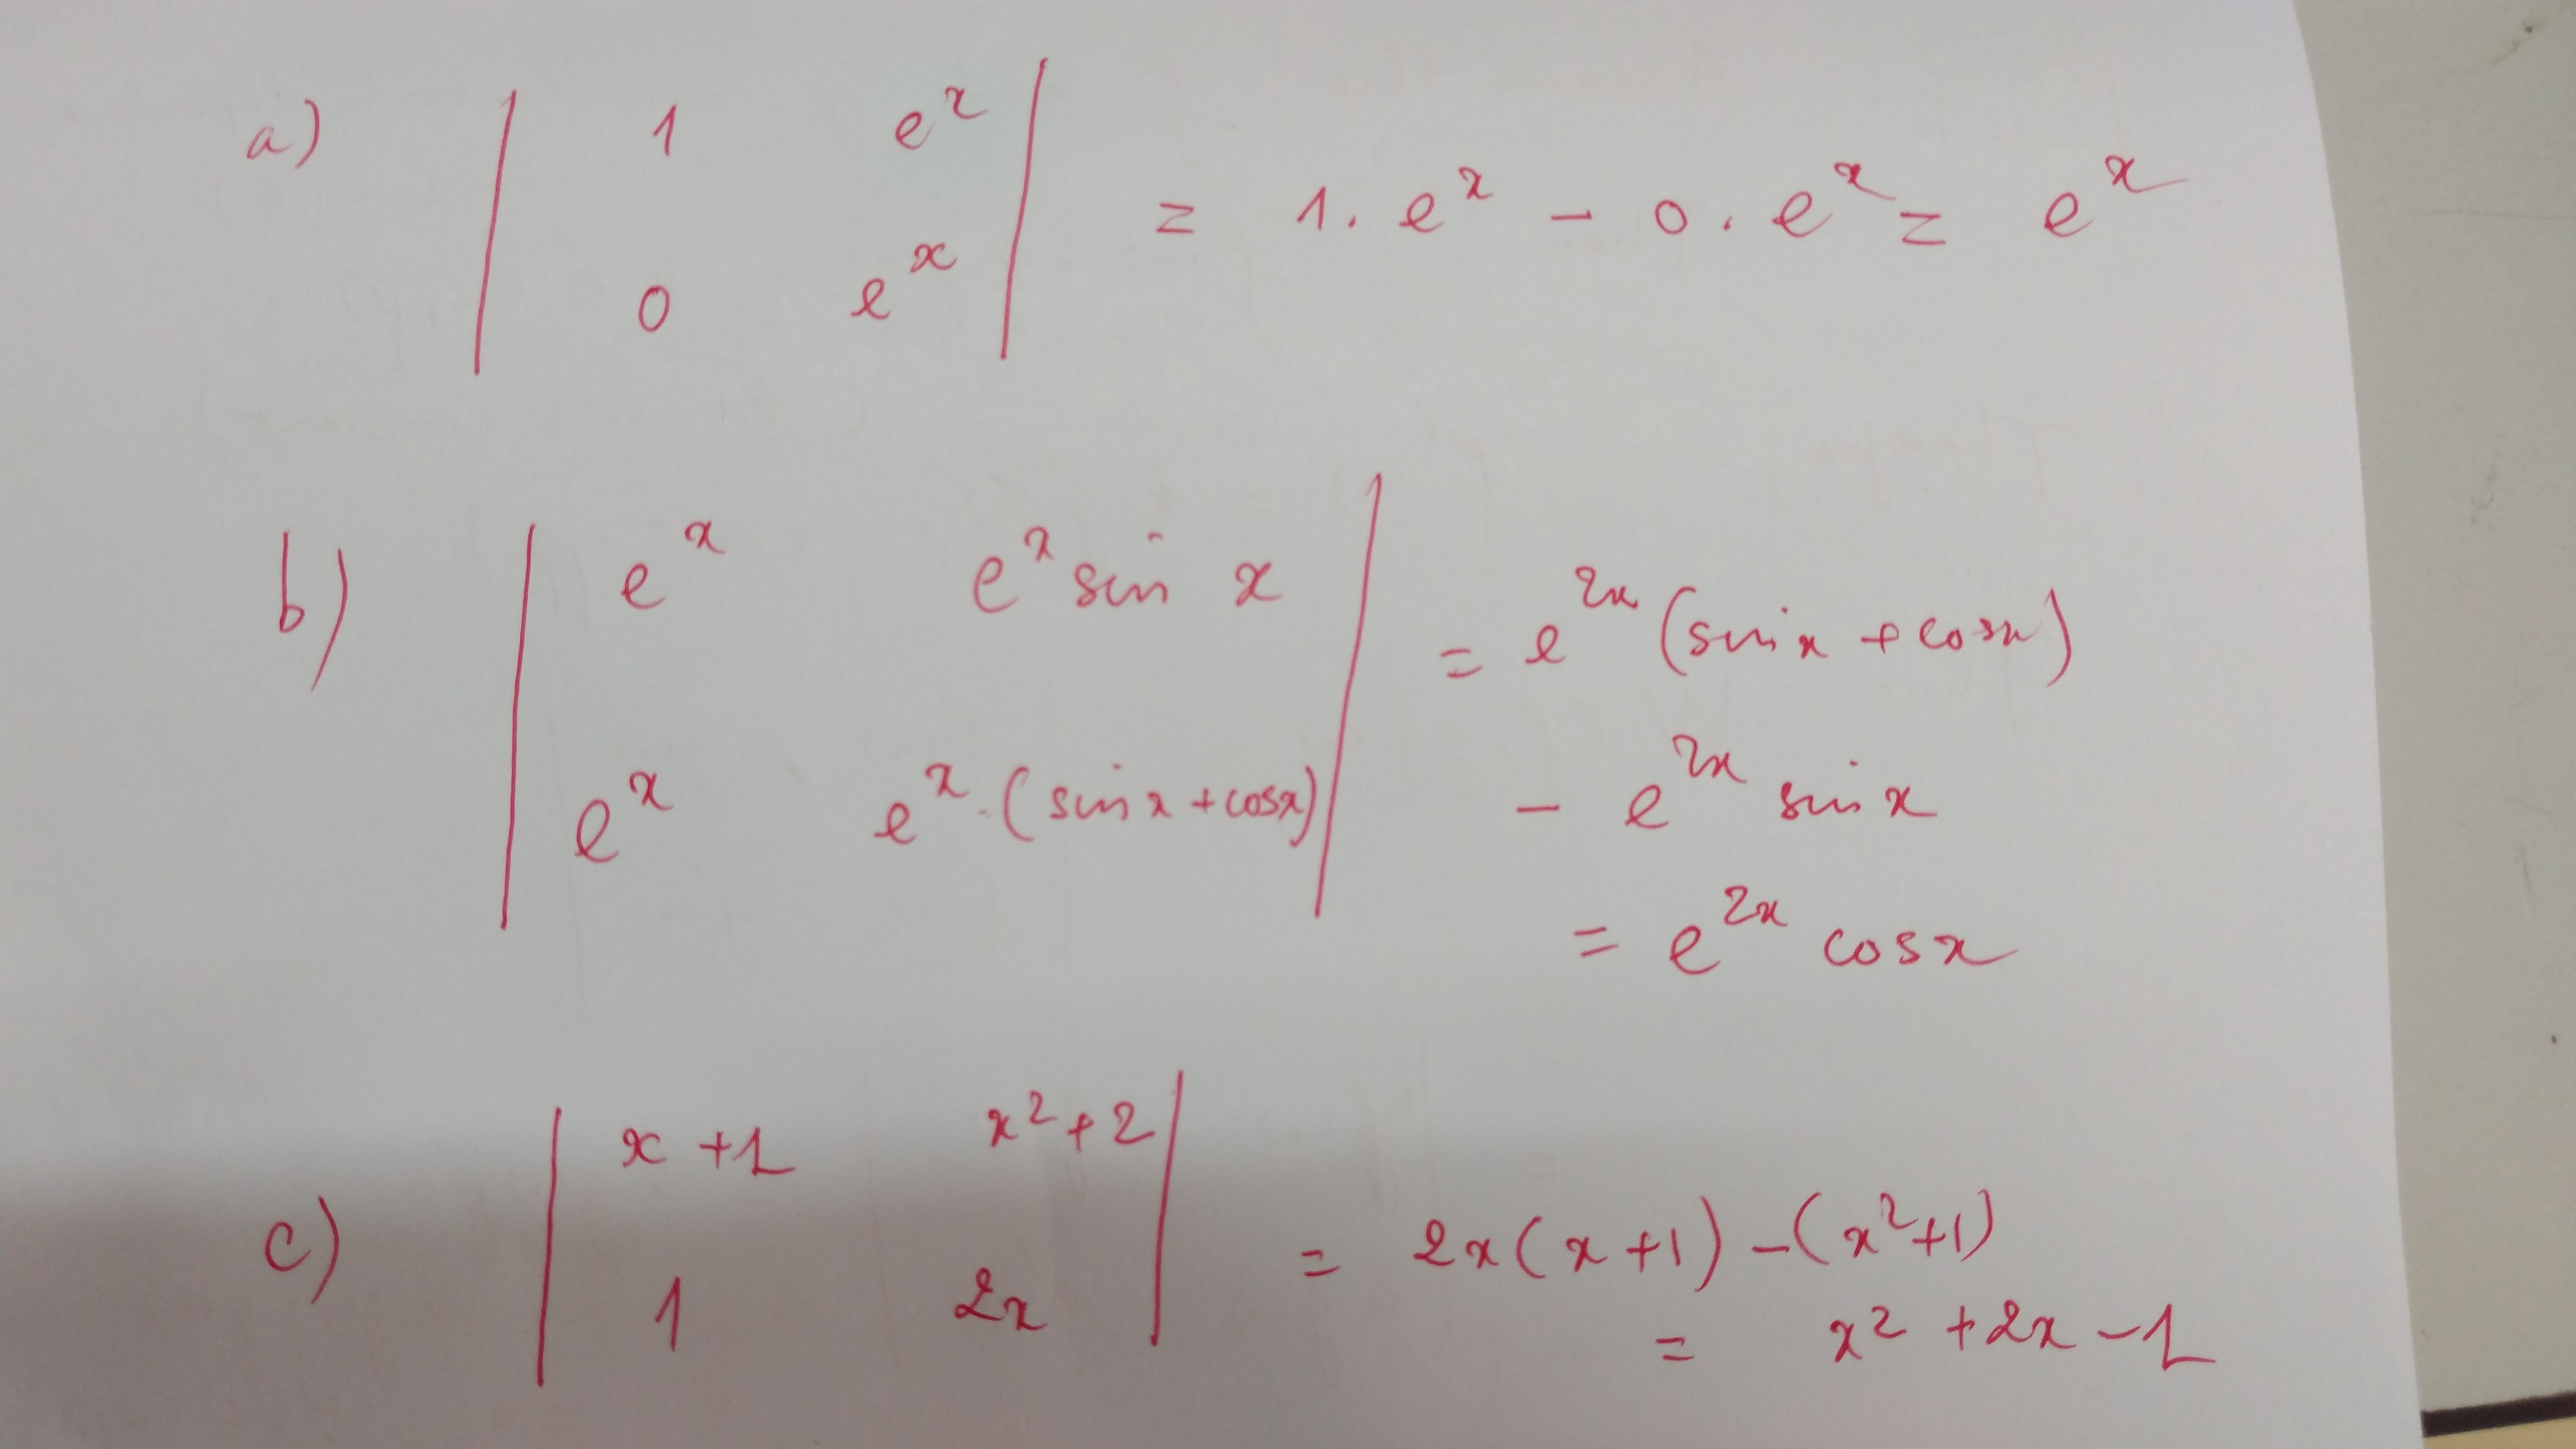 a) | 1 eˣ |
| 0 eˣ | = 1. eˣ - 0. eˣ = eˣ
b) | eˣ eˣ sin x |
| eˣ eˣ.(sin x + cosx) | = e²ˣ (sin x + cosx)
- e²ˣ sin x
= e²ˣ cosx
c) | x + 1 x² + 2 |
| 1 2x | = 2x(x+1) - (x²+1)
= x² + 2x - 1